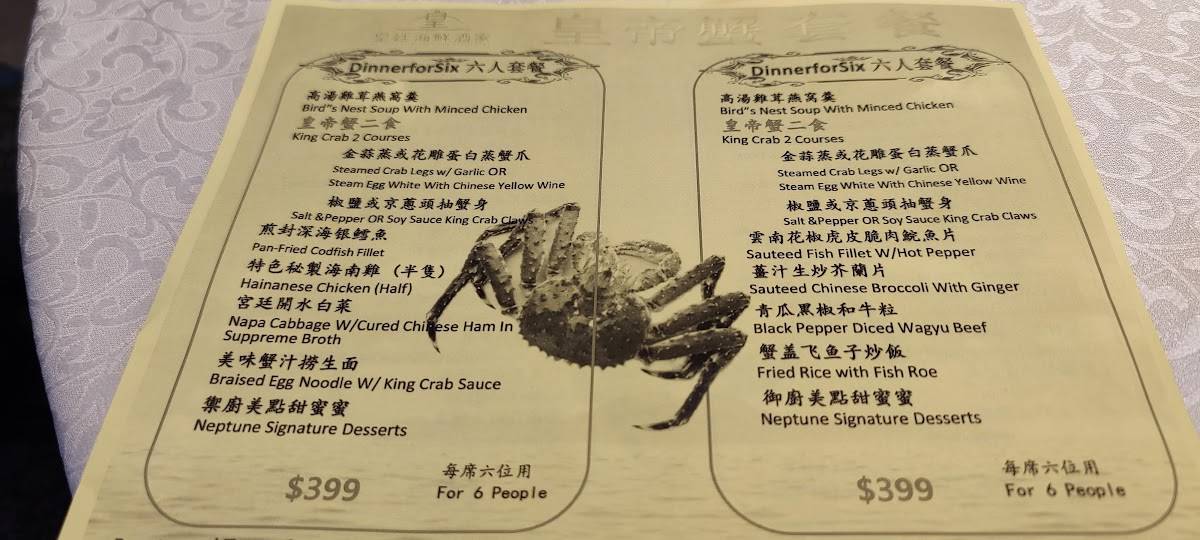 皇
皇朝海鮮酒家
皇帝蟹套餐
DinnerforSix 六人套餐
高湯雞茸燕窩羹
Bird"s Nest Soup With Minced Chicken
皇帝蟹二食
King Crab 2 Courses
金蒜蒸或花雕蛋白蒸蟹爪
Steamed Crab Legs w/ Garlic OR
Steam Egg White With Chinese Yellow Wine
椒鹽或京蔥頭抽蟹身
Salt &Pepper OR Soy Sauce King Crab Claws
煎封深海银鱈魚
Pan-Fried Codfish Fillet
特色秘製海南雞 (半隻)
Hainanese Chicken (Half)
宮廷開水白菜
Napa Cabbage W/Cured Chinese Ham In
Suppreme Broth
美味蟹汁撈生面
Braised Egg Noodle W/ King Crab Sauce
禦廚美點甜蜜蜜
Neptune Signature Desserts
$399
每席六位用
For 6 People
DinnerforSix 六人套餐
高湯雞茸燕窩羹
Bird"s Nest Soup With Minced Chicken
皇帝蟹二食
King Crab 2 Courses
金蒜蒸或花雕蛋白蒸蟹爪
Steamed Crab Legs w/ Garlic OR
Steam Egg White With Chinese Yellow Wine
椒鹽或京蔥頭抽蟹身
Salt &Pepper OR Soy Sauce King Crab Claws
雲南花椒虎皮脆肉鯇魚片
Sauteed Fish Fillet W/Hot Pepper
薑汁生炒芥蘭片
Sauteed Chinese Broccoli With Ginger
青瓜黑椒和牛粒
Black Pepper Diced Wagyu Beef
蟹盖飞鱼子炒飯
Fried Rice with Fish Roe
御廚美點甜蜜蜜
Neptune Signature Desserts
$399
每席六位用
For 6 People